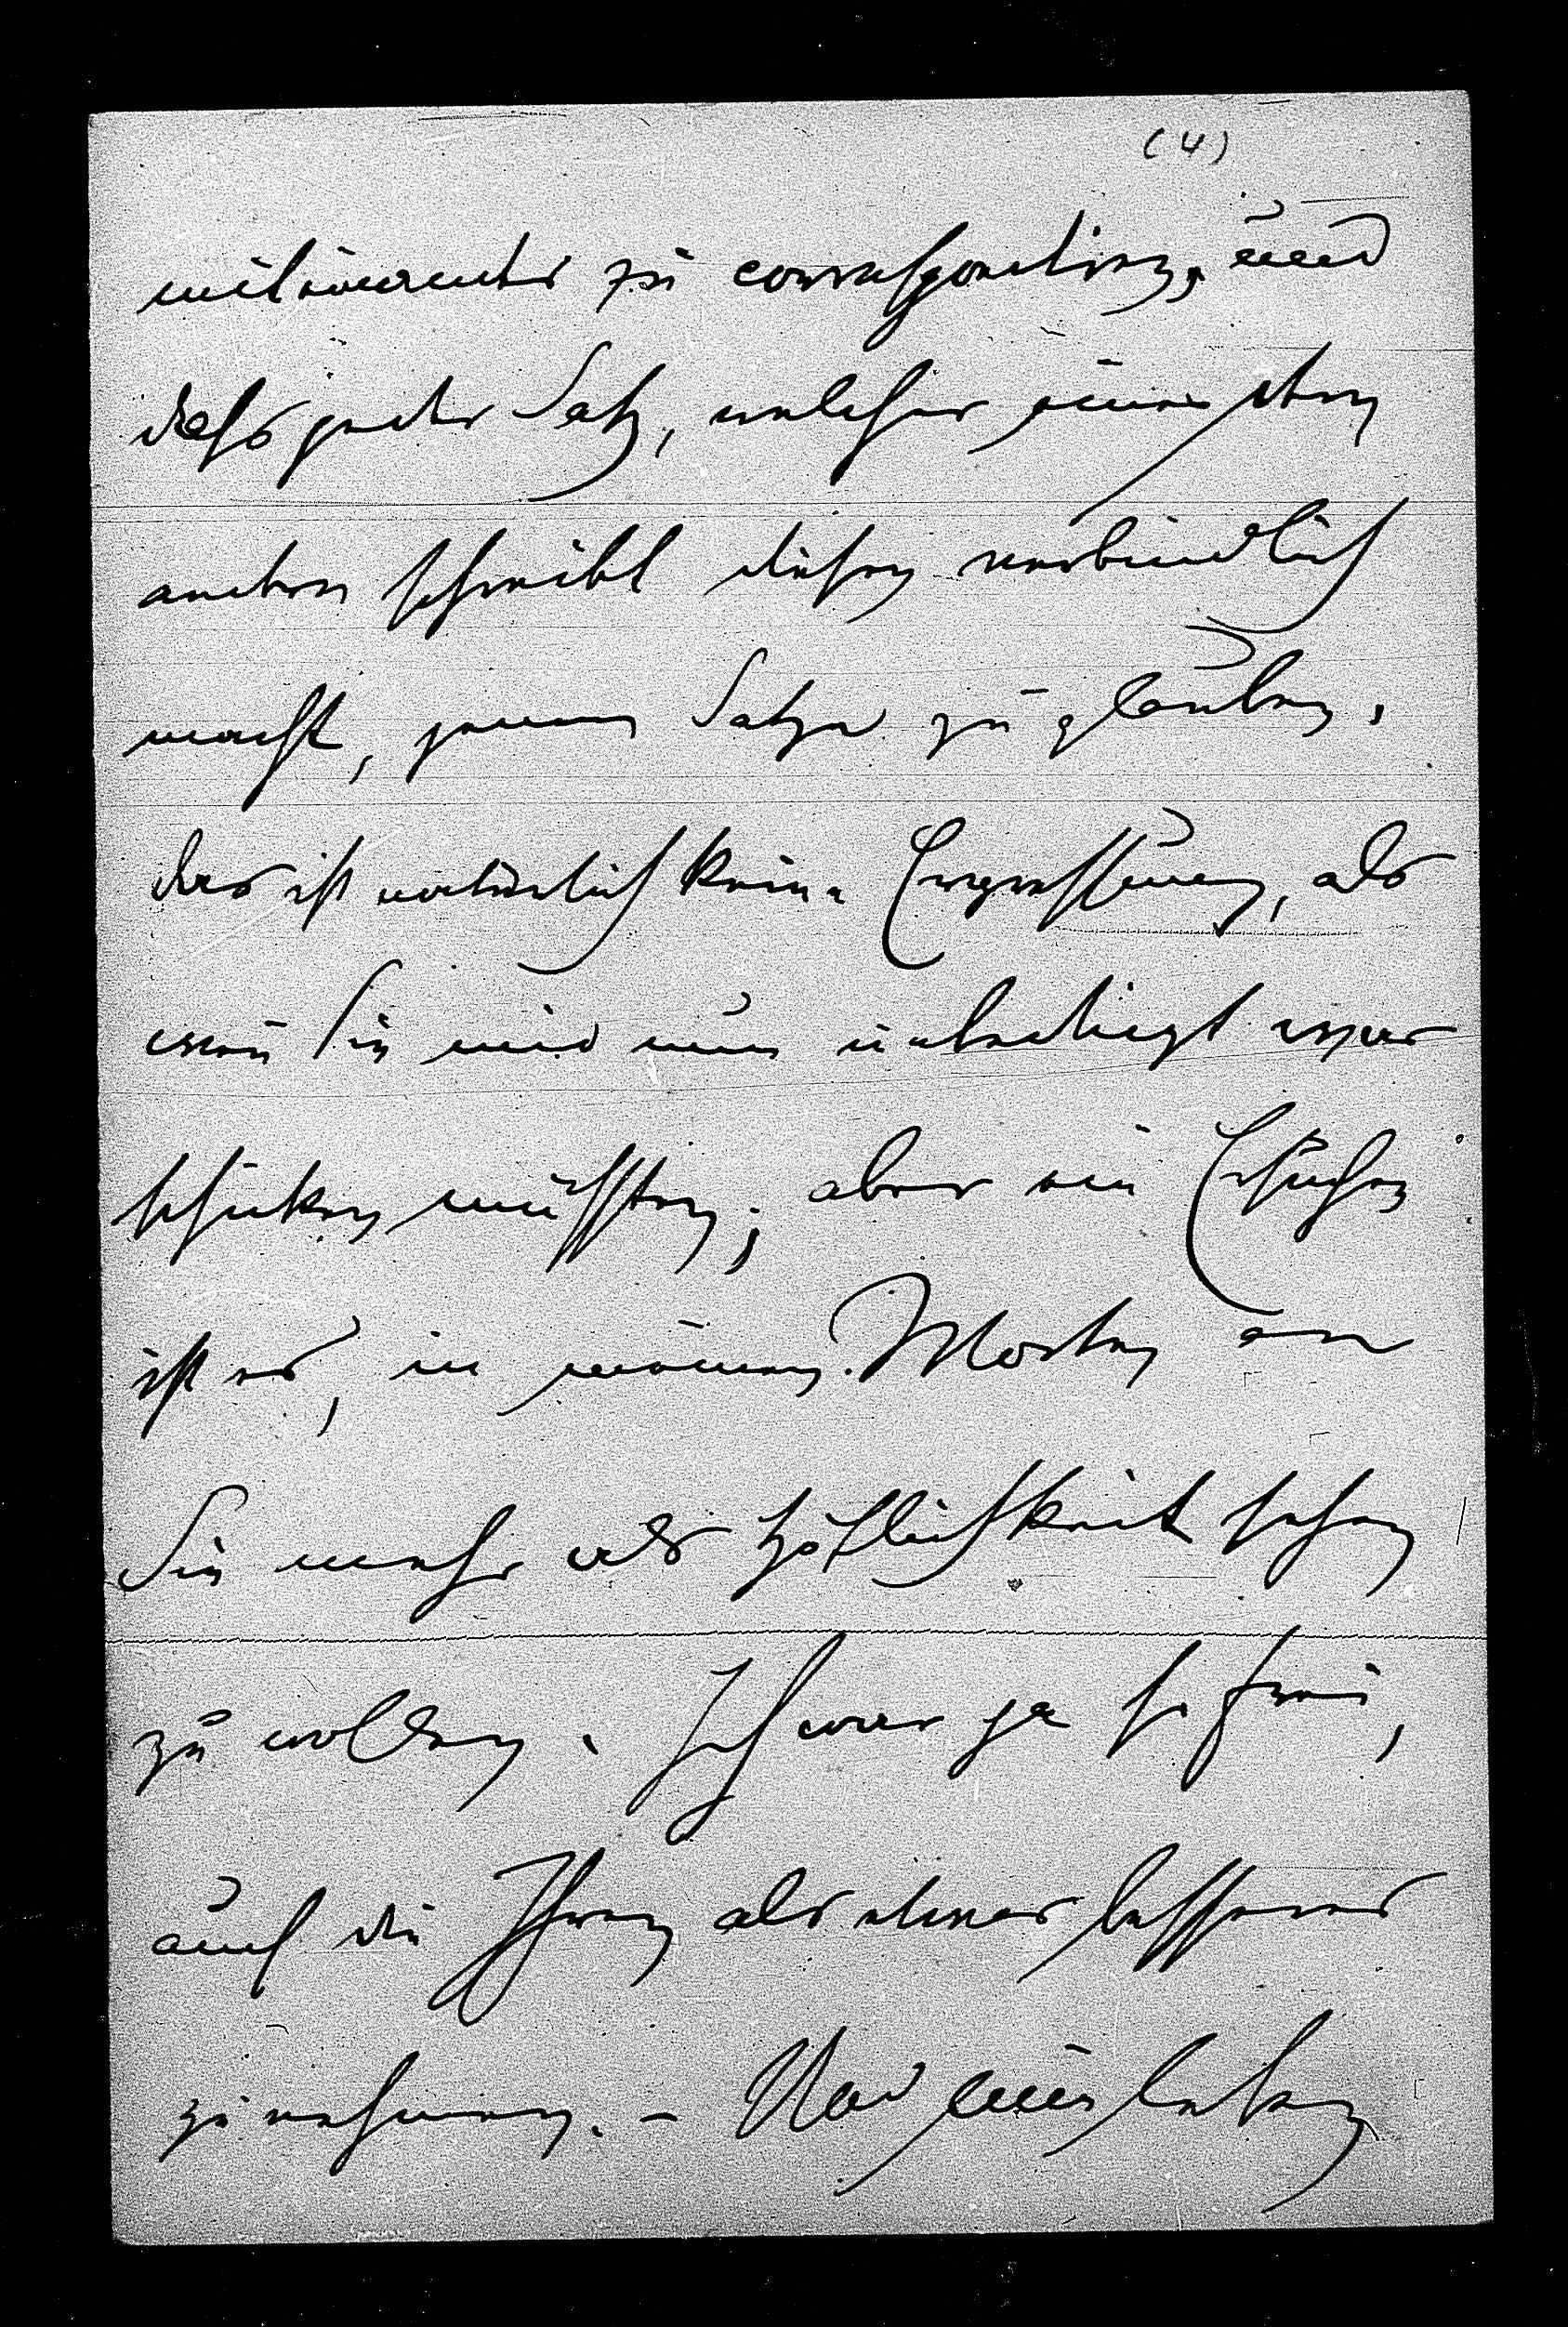 (4)
miteinander zu correspondiren, und
daß jeder Satz, welcher einer dem
andern schreibt diesen verbindlich
macht, jenem Satze zu glauben.
das ist natürlich keine Erpressung, als
wenn Sie mir nun unbedingt etwas
schicken müßten; aber ein Ersuchen
ist es, in meinen Worten an
Sie mehr als Höflichkeit sehen
zu wollen. Ich war ja so frei,
auch die Ihren als etwas besseres
zu nehmen. – Und nun leben